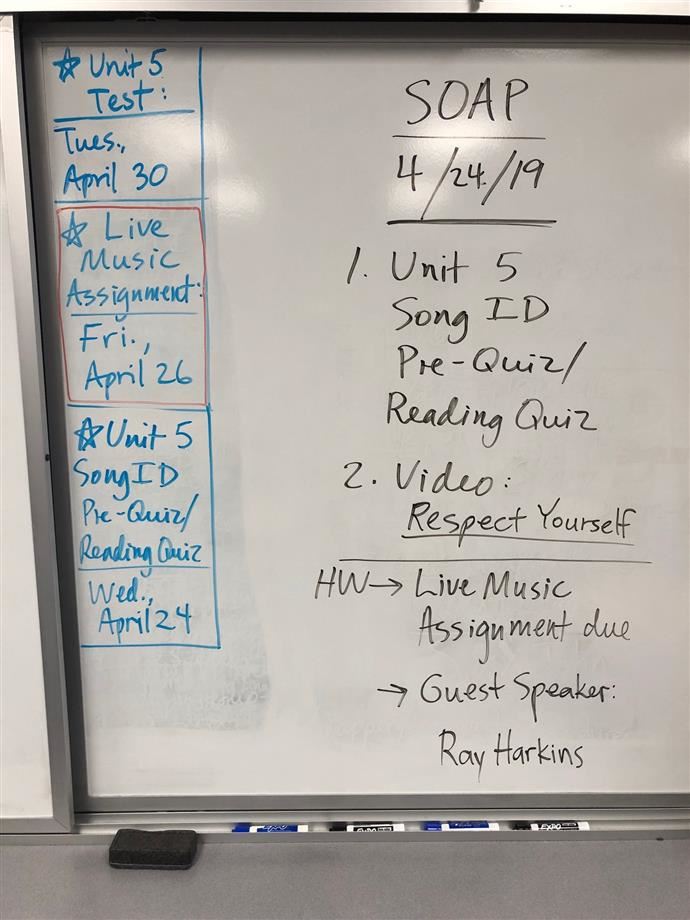 ☆ Unit 5
Test:
Tues.,
April 30
☆ Live
Music
Assignment:
Fri.,
April 26
☆ Unit 5
Song ID
Pre-Quiz/
Reading Quiz
Wed.,
April 24
SOAP
4/24/19
1. Unit 5
Song ID
Pre-Quiz/
Reading Quiz
2. Video:
Respect Yourself
HW → Live Music
Assignment due
→ Guest Speaker:
Ray Harkins
EXPO
EXPO